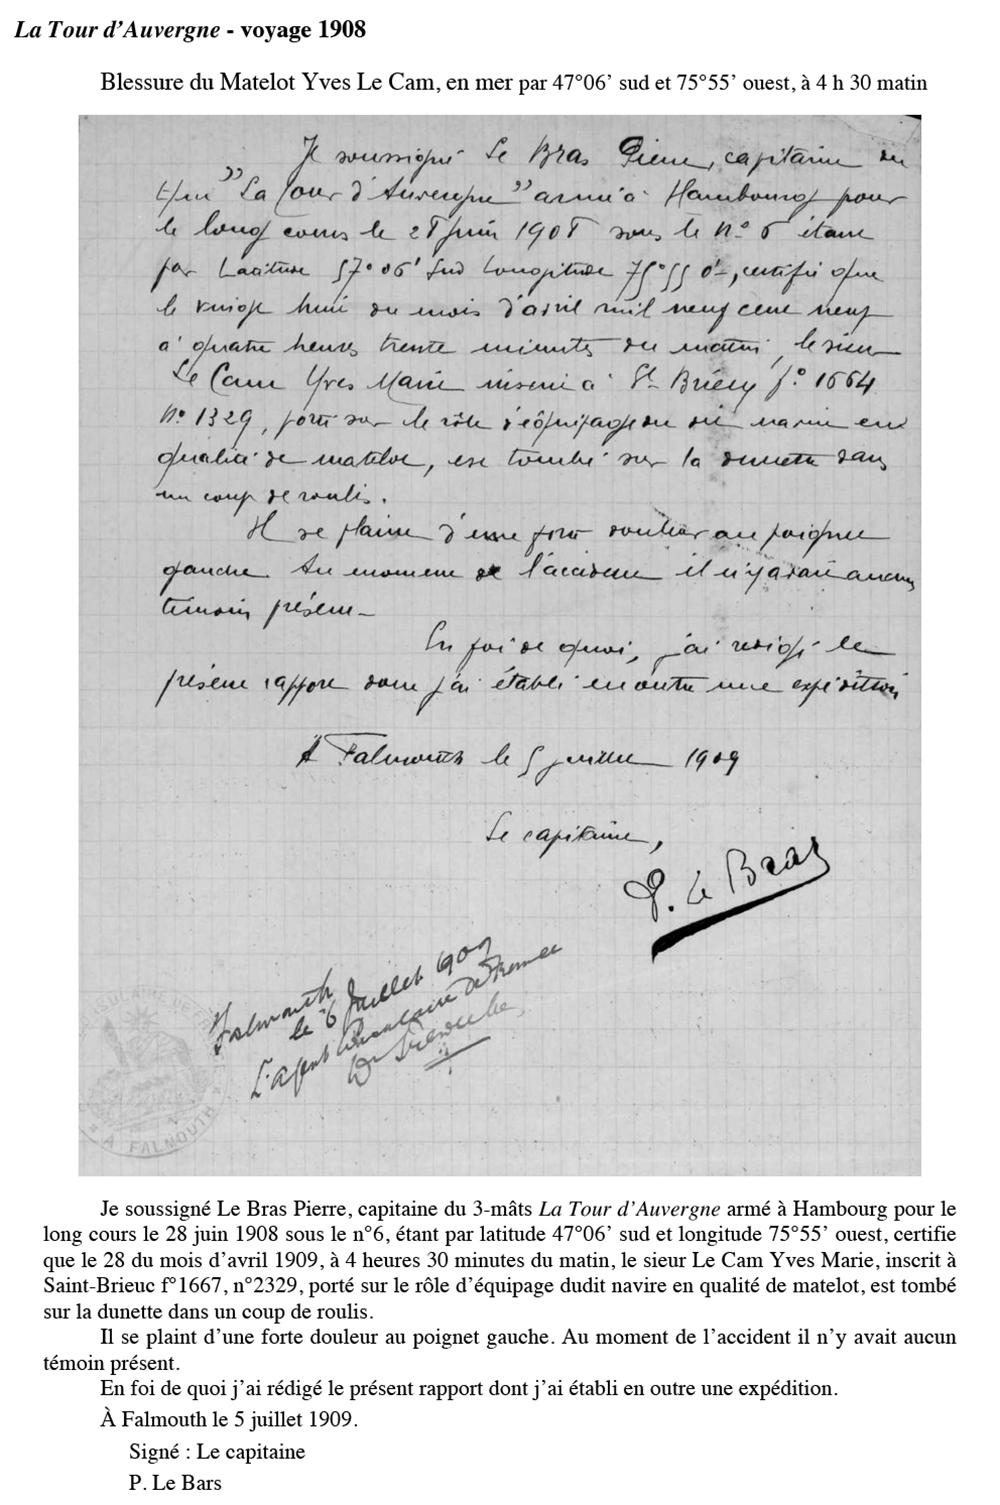 La Tour d’Auvergne - voyage 1908
Blessure du Matelot Yves Le Cam, en mer par 47°06’ sud et 75°55’ ouest, à 4 h 30 matin
Je soussigné Le Bras Pierre, capitaine du
"La Tour d'Auvergne" armé à Hambourg pour
le long cours le 28 juin 1908 sous le N° 6 étant
par Latitude 57° 06' Sud Longitude 75° 55 O-, certifie que
le vingt huit du mois d'avril mil neuf cent neuf
à quatre heures trente minutes du matin, le sieur
Le Cam Yves Marie inscrit à St Brieuc f° 1664
N° 1329, porté sur le rôle d'équipage du dit navire en
qualité de matelot, est tombé sur la dunette dans
un coup de roulis.
Il se plaint d'une forte douleur au poignet
gauche. Au moment de l'accident il n'y avait aucun
témoin présent -
En foi de quoi, j'ai rédigé le
présent rapport dont j'ai établi en outre une expédition
A Falmouth le 5 juillet 1909
Le capitaine,
P. Le Bras
Falmouth
le 6 Juillet 1909
L'agent Consulaire de France
A FALMOUTH
Je soussigné Le Bras Pierre, capitaine du 3-mâts La Tour d’Auvergne armé à Hambourg pour le
long cours le 28 juin 1908 sous le n°6, étant par latitude 47°06’ sud et longitude 75°55’ ouest, certifie
que le 28 du mois d’avril 1909, à 4 heures 30 minutes du matin, le sieur Le Cam Yves Marie, inscrit à
Saint-Brieuc f°1667, n°2329, porté sur le rôle d’équipage dudit navire en qualité de matelot, est tombé
sur la dunette dans un coup de roulis.
Il se plaint d’une forte douleur au poignet gauche. Au moment de l’accident il n’y avait aucun
témoin présent.
En foi de quoi j’ai rédigé le présent rapport dont j’ai établi en outre une expédition.
À Falmouth le 5 juillet 1909.
Signé : Le capitaine
P. Le Bars